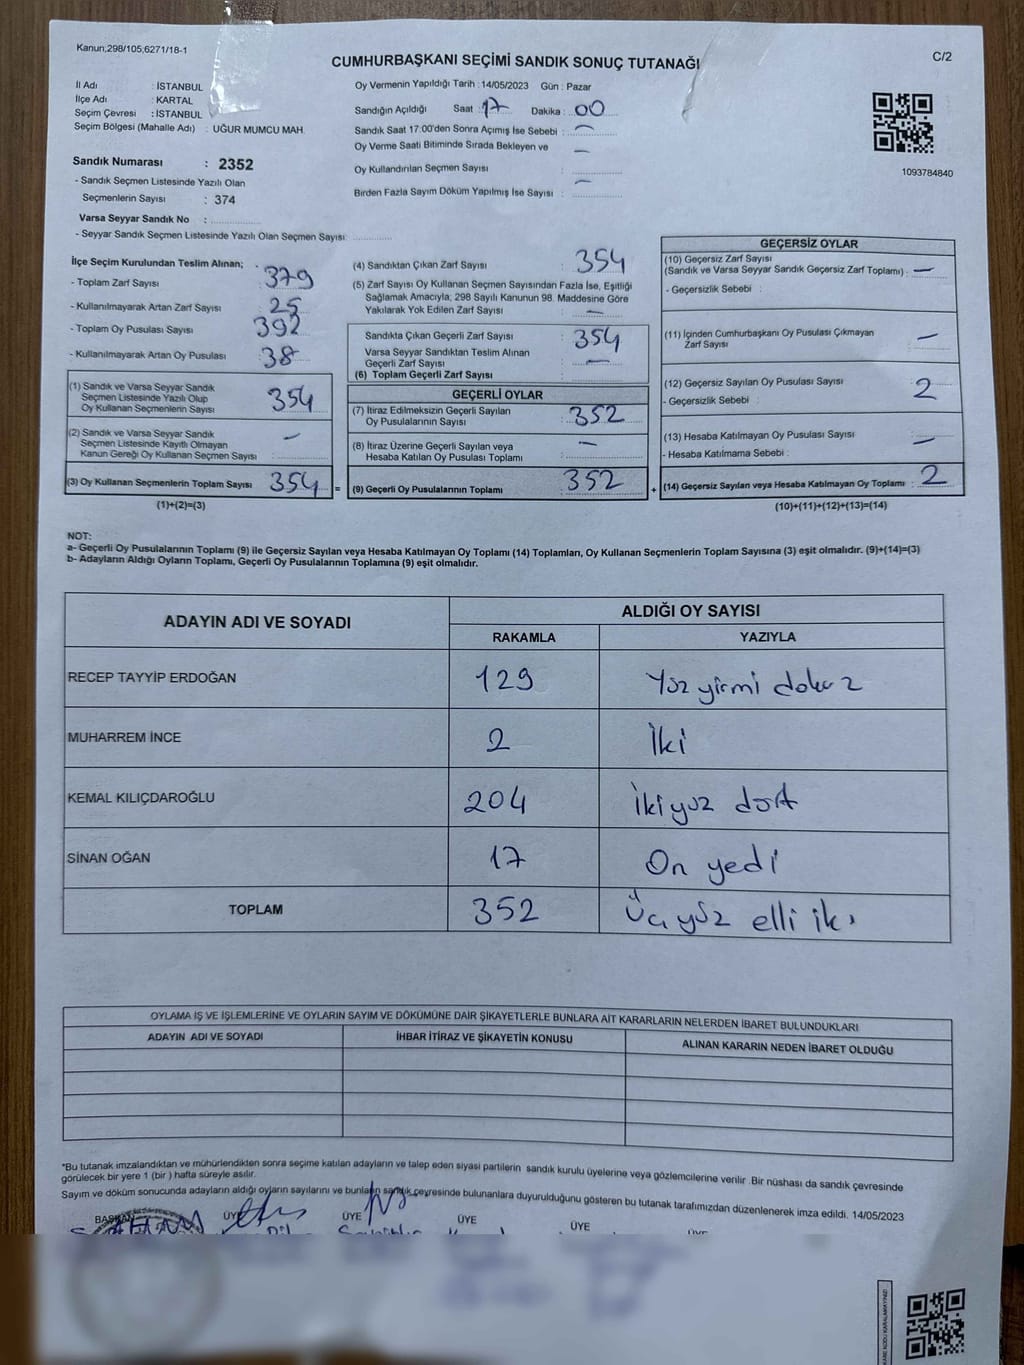 Kanun;298/105;6271/18-1
C/2
CUMHURBAŞKANI SEÇİMİ SANDIK SONUÇ TUTANAĞI
İl Adı : İSTANBUL
İlçe Adı : KARTAL
Seçim Çevresi : İSTANBUL
Seçim Bölgesi (Mahalle Adı) : UĞUR MUMCU MAH.
Sandık Numarası : 2352
- Sandık Seçmen Listesinde Yazılı Olan
Seçmenlerin Sayısı : 374
Varsa Seyyar Sandık No :
- Seyyar Sandık Seçmen Listesinde Yazılı Olan Seçmen Sayısı:
Oy Vermenin Yapıldığı Tarih : 14/05/2023 Gün : Pazar
Sandığın Açıldığı Saat : 17 Dakika : 00
Sandık Saat 17:00'den Sonra Açımış İse Sebebi : —
Oy Verme Saati Bitiminde Sırada Bekleyen ve —
Oy Kullandırılan Seçmen Sayısı :
Birden Fazla Sayım Döküm Yapılmış İse Sayısı : —
1093784840
İlçe Seçim Kurulundan Teslim Alınan;
- Toplam Zarf Sayısı : 379
- Kullanılmayarak Artan Zarf Sayısı : 25
- Toplam Oy Pusulası Sayısı : 392
- Kullanılmayarak Artan Oy Pusulası : 38
(1) Sandık ve Varsa Seyyar Sandık
Seçmen Listesinde Yazılı Olup
Oy Kullanan Seçmenlerin Sayısı : 354
(2) Sandık ve Varsa Seyyar Sandık
Seçmen Listesinde Kayıtlı Olmayan
Kanun Gereği Oy Kullanan Seçmen Sayısı : —
(3) Oy Kullanan Seçmenlerin Toplam Sayısı : 354 =
(1)+(2)=(3)
(4) Sandıktan Çıkan Zarf Sayısı : 354
(5) Zarf Sayısı Oy Kullanan Seçmen Sayısından Fazla İse, Eşitliği
Sağlamak Amacıyla, 298 Sayılı Kanunun 98. Maddesine Göre
Yakılarak Yok Edilen Zarf Sayısı : —
Sandıkta Çıkan Geçerli Zarf Sayısı : 354
Varsa Seyyar Sandıktan Teslim Alınan
Geçerli Zarf Sayısı : —
(6) Toplam Geçerli Zarf Sayısı :
GEÇERLİ OYLAR
(7) İtiraz Edilmeksizin Geçerli Sayılan
Oy Pusulasının Sayısı : 352
(8) İtiraz Üzerine Geçerli Sayılan veya
Hesaba Katılan Oy Pusulası Toplamı : —
(9) Geçerli Oy Pusulalarının Toplamı : 352 +
GEÇERSİZ OYLAR
(10) Geçersiz Zarf Sayısı
(Sandık ve Varsa Seyyar Sandık Geçersiz Zarf Toplamı) : —
- Geçersizlik Sebebi :
(11) İçinden Cumhurbaşkanı Oy Pusulası Çıkmayan
Zarf Sayısı : —
(12) Geçersiz Sayılan Oy Pusulası Sayısı : 2
- Geçersizlik Sebebi :
(13) Hesaba Katılmayan Oy Pusulası Sayısı : —
- Hesaba Katılmama Sebebi :
(14) Geçersiz Sayılan veya Hesaba Katılmayan Oy Toplamı : 2
(10)+(11)+(12)+(13)=(14)
NOT:
a- Geçerli Oy Pusulalarının Toplamı (9) ile Geçersiz Sayılan veya Hesaba Katılmayan Oy Toplamı (14) Toplamları, Oy Kullanan Seçmenlerin Toplam Sayısına (3) eşit olmalıdır. (9)+(14)=(3)
b- Adayların Aldığı Oyların Toplamı, Geçerli Oy Pusulalarının Toplamına (9) eşit olmalıdır.
ADAYIN ADI VE SOYADI ALDIĞI OY SAYISI
RAKAMLA YAZIYLA
RECEP TAYYİP ERDOĞAN 129 Yüz yirmi dokuz
MUHARREM İNCE 2 İki
KEMAL KILIÇDAROĞLU 204 İkiyüz dört
SİNAN OĞAN 17 On yedi
TOPLAM 352 Üçyüz elli iki
OYLAMA İŞ VE İŞLEMLERİNE VE OYLARIN SAYIM VE DÖKÜMÜNE DAİR ŞİKAYETLERLE BUNLARA AİT KARARLARIN NELERDEN İBARET BULUNDUKLARI
ADAYIN ADI VE SOYADI İHBAR İTİRAZ VE ŞİKAYETİN KONUSU ALINAN KARARIN NEDEN İBARET OLDUĞU
*Bu tutanak imzalandıktan ve mühürlendikten sonra seçime katılan adayların ve talep eden siyasi partilerin sandık kurulu üyelerine veya gözlemcilerine verilir .Bir nüshası da sandık çevresinde
görülecek bir yere 1 (bir ) hafta süreyle asılır.
Sayım ve döküm sonucunda adayların aldığı oyların sayılarını ve bunların sandık çevresinde bulunanlara duyurulduğunu gösteren bu tutanak tarafımızdan düzenlenerek imza edildi. 14/05/2023
BAŞKAN ÜYE ÜYE ÜYE ÜYE ÜYE